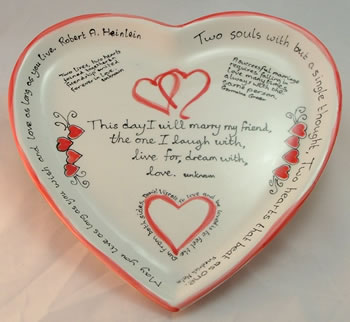 May you live as long as you wish and love as long as you live. Robert A. Heinlein
Two souls with but a single thought, Two hearts that beat as one.
two hearts
friendship united
forever in love
unknown
A successful marriage
requires falling in
love many times
always with the
same person.
This day I will marry my friend,
the one I laugh with,
live for, dream with,
love. unknown